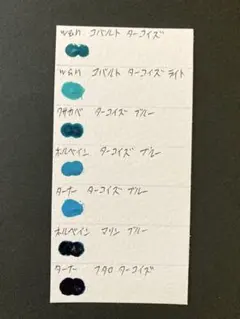 W&N コバルト ターコイズ
W&N コバルト ターコイズ ライト
クサカベ ターコイズ ブルー
ホルベイン ターコイズ ブルー
ターナー ターコイズ ブルー
ホルベイン マリン ブルー
ターナー フタロ ターコイズ